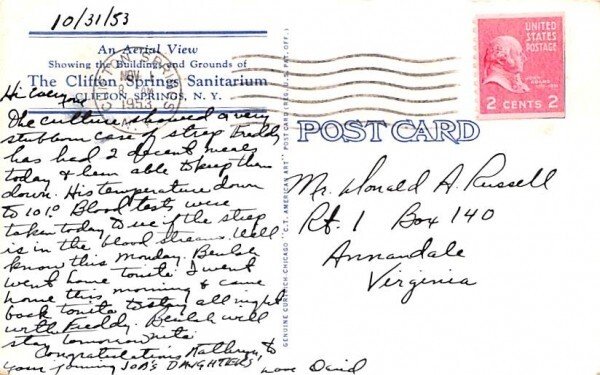 10/31/53
An Aerial View
Showing the Buildings and Grounds of
The Clifton Springs Sanitarium
CLIFTON SPRINGS, N. Y.
CLIFTON SPRINGS
NOV 1
AM
1953
N.Y.
UNITED
STATES
POSTAGE
JOHN
ADAMS
2 CENTS 2
POST CARD
GENUINE CURTEICH-CHICAGO "C.T. AMERICAN ART" POST CARD (REG. U.S. PAT. OFF.)
Hi
The culture showed a very
stubborn case of strep. Freddy
has had 2 decent meals
today & been able to keep them
down. His temperature down
to 101° Blood tests were
taken today to see if the strep
is in the blood stream. Will
know this Monday. Beulah
went home tonite. I went
home this morning & came
back tonite to stay all night
with Freddy. Beulah will
stay tomorrow nite.
Congratulations Kathryn, to
your joining JOB'S DAUGHTERS
Love David
Mr. Donald A. Russell
Rt. 1 Box 140
Annandale
Virginia